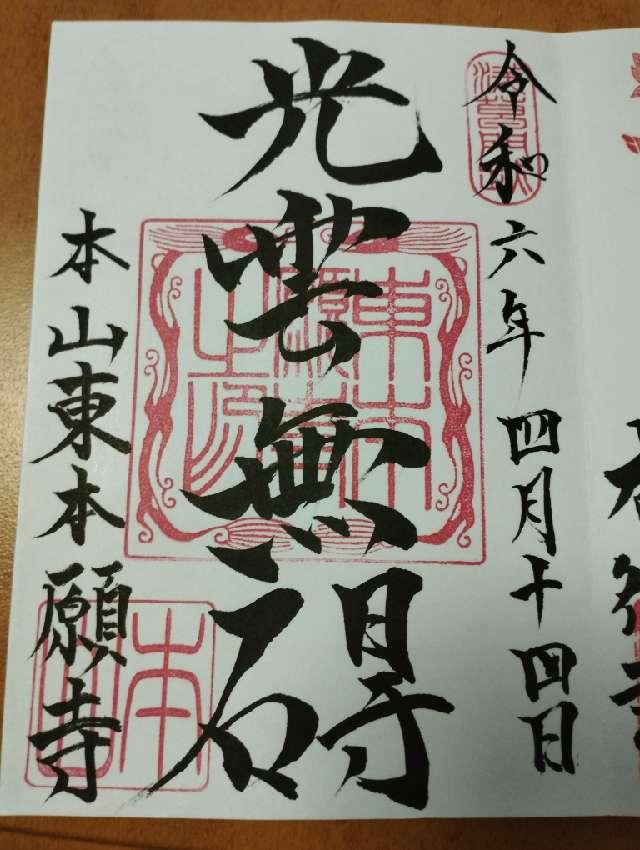 令和六年四月十四日
光雲無碍
本山東本願寺
東本
願寺
之印
本山